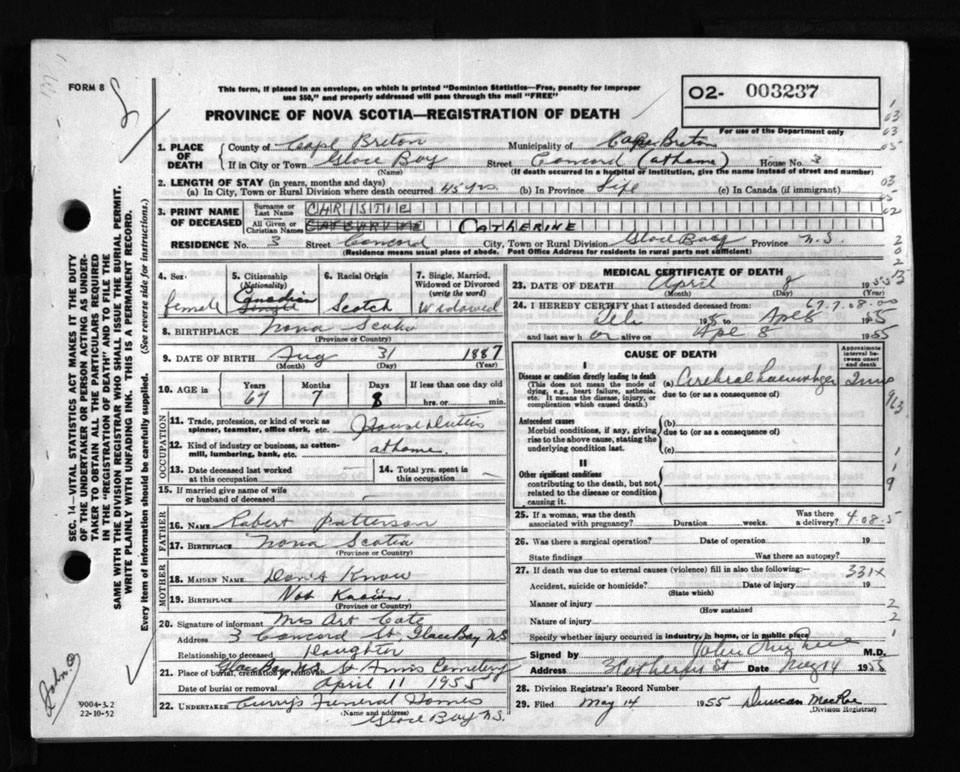 FORM 8
This form, if placed in an envelope, on which is printed "Dominion Statistics—Free, penalty for improper
use $50," and properly addressed will pass through the mail "FREE"
PROVINCE OF NOVA SCOTIA—REGISTRATION OF DEATH
O2- 003237
For use of the Department only
1. PLACE OF DEATH
County of Cape Breton Municipality of Cape Breton
If in City or Town Glace Bay Street Concord (at home) House No. 3
(Name) (If death occurred in a hospital or institution, give the name instead of street and number)
2. LENGTH OF STAY (in years, months and days)
(a) In City, Town or Rural Division where death occurred 45 yrs. (b) In Province Life (c) In Canada (if immigrant)
3. PRINT NAME OF DECEASED
Surname or Last Name CHRISTIE
All Given or Christian Names CATHERINE
RESIDENCE No. 3 Street Concord City, Town or Rural Division Glace Bay Province N.S.
(Residence means usual place of abode. Post Office Address for residents in rural parts not sufficient)
4. Sex female
5. Citizenship (Nationality) Canadian
6. Racial Origin Scotch
7. Single, Married, Widowed or Divorced (write the word) Widowed
8. BIRTHPLACE Nova Scotia
(Province or Country)
9. DATE OF BIRTH Aug 31 1887
(Month) (Date) (Year)
10. AGE in Years 67 Months 7 Days 8 If less than one day old
hrs. or min.
OCCUPATION
11. Trade, profession, or kind of work as spinner, teamster, office clerk, etc. House Duties
12. Kind of industry or business, as cotton-mill, lumbering, bank, etc. at home.
13. Date deceased last worked at this occupation —
14. Total yrs. spent in this occupation —
15. If married give name of wife or husband of deceased
FATHER
16. NAME Robert Patterson
17. BIRTHPLACE Nova Scotia
(Province or Country)
MOTHER
18. MAIDEN NAME Don't Know
19. BIRTHPLACE Not Known
(Province or Country)
20. Signature of informant Mrs Art Cate
Address 3 Concord St. Glace Bay NS
Relationship to deceased Daughter
21. Place of burial, cremation or removal Glace Bay N.S. St Anns Cemetery
Date of burial or removal April 11 1955
22. UNDERTAKER Curry's Funeral Homes
(Name and address) Glace Bay N.S.
MEDICAL CERTIFICATE OF DEATH
23. DATE OF DEATH April 8 1955
(Month) (Day) (Year)
67.7.08-00
24. I HEREBY CERTIFY that I attended deceased from
Feb 1955 to Apl 8 1955
and last saw h er alive on Apl 8 1955
CAUSE OF DEATH
Approximate interval between onset and death
I
Disease or condition directly leading to death
(This does not mean the mode of dying, e.g., heart failure, asthenia, etc. It means the disease, injury, or complication which caused death.)
(a) Cerebral
due to (or as a consequence of)
Antecedent causes
Morbid conditions, if any, giving rise to the above cause, stating the underlying condition last.
(b)
due to (or as a consequence of)
(c)
II
Other significant conditions
contributing to the death, but not related to the disease or condition causing it.
25. If a woman, was the death associated with pregnancy? Duration weeks. Was there a delivery? 4-08-5
26. Was there a surgical operation? Date of operation 19
State findings Was there an autopsy?
27. If death was due to external causes (violence) fill in also the following:— 331X
Accident, suicide or homicide? Date of injury 19
(State which)
Manner of injury
(How sustained)
Nature of injury
Specify whether injury occurred in industry, in home, or in public place
Signed by John M.D.
Address St Date May 14 1955
28. Division Registrar's Record Number
29. Filed May 14 1955 Duncan MacRae
(Division Registrar)
SEC. 14—VITAL STATISTICS ACT MAKES IT THE DUTY
OF THE UNDERTAKER OR PERSON ACTING AS UNDER-
TAKER TO OBTAIN ALL THE PARTICULARS REQUIRED
IN THE "REGISTRATION OF DEATH" AND TO FILE THE
SAME WITH THE DIVISION REGISTRAR WHO SHALL ISSUE THE BURIAL PERMIT.
WRITE PLAINLY WITH UNFADING INK. THIS IS A PERMANENT RECORD.
Every item of information should be carefully supplied. (See reverse side for instructions.)
9004-3.2
22-10-52